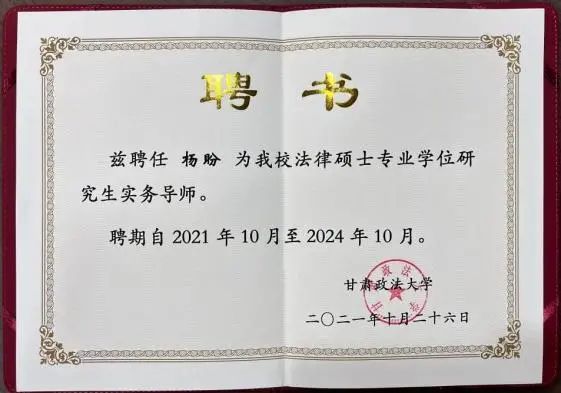 聘 书
兹聘任 杨盼 为我校法律硕士专业学位研
究生实务导师。
聘期自 2021 年 10 月至 2024 年 10 月。
甘肃政法大学
二〇二一年十月二十六日